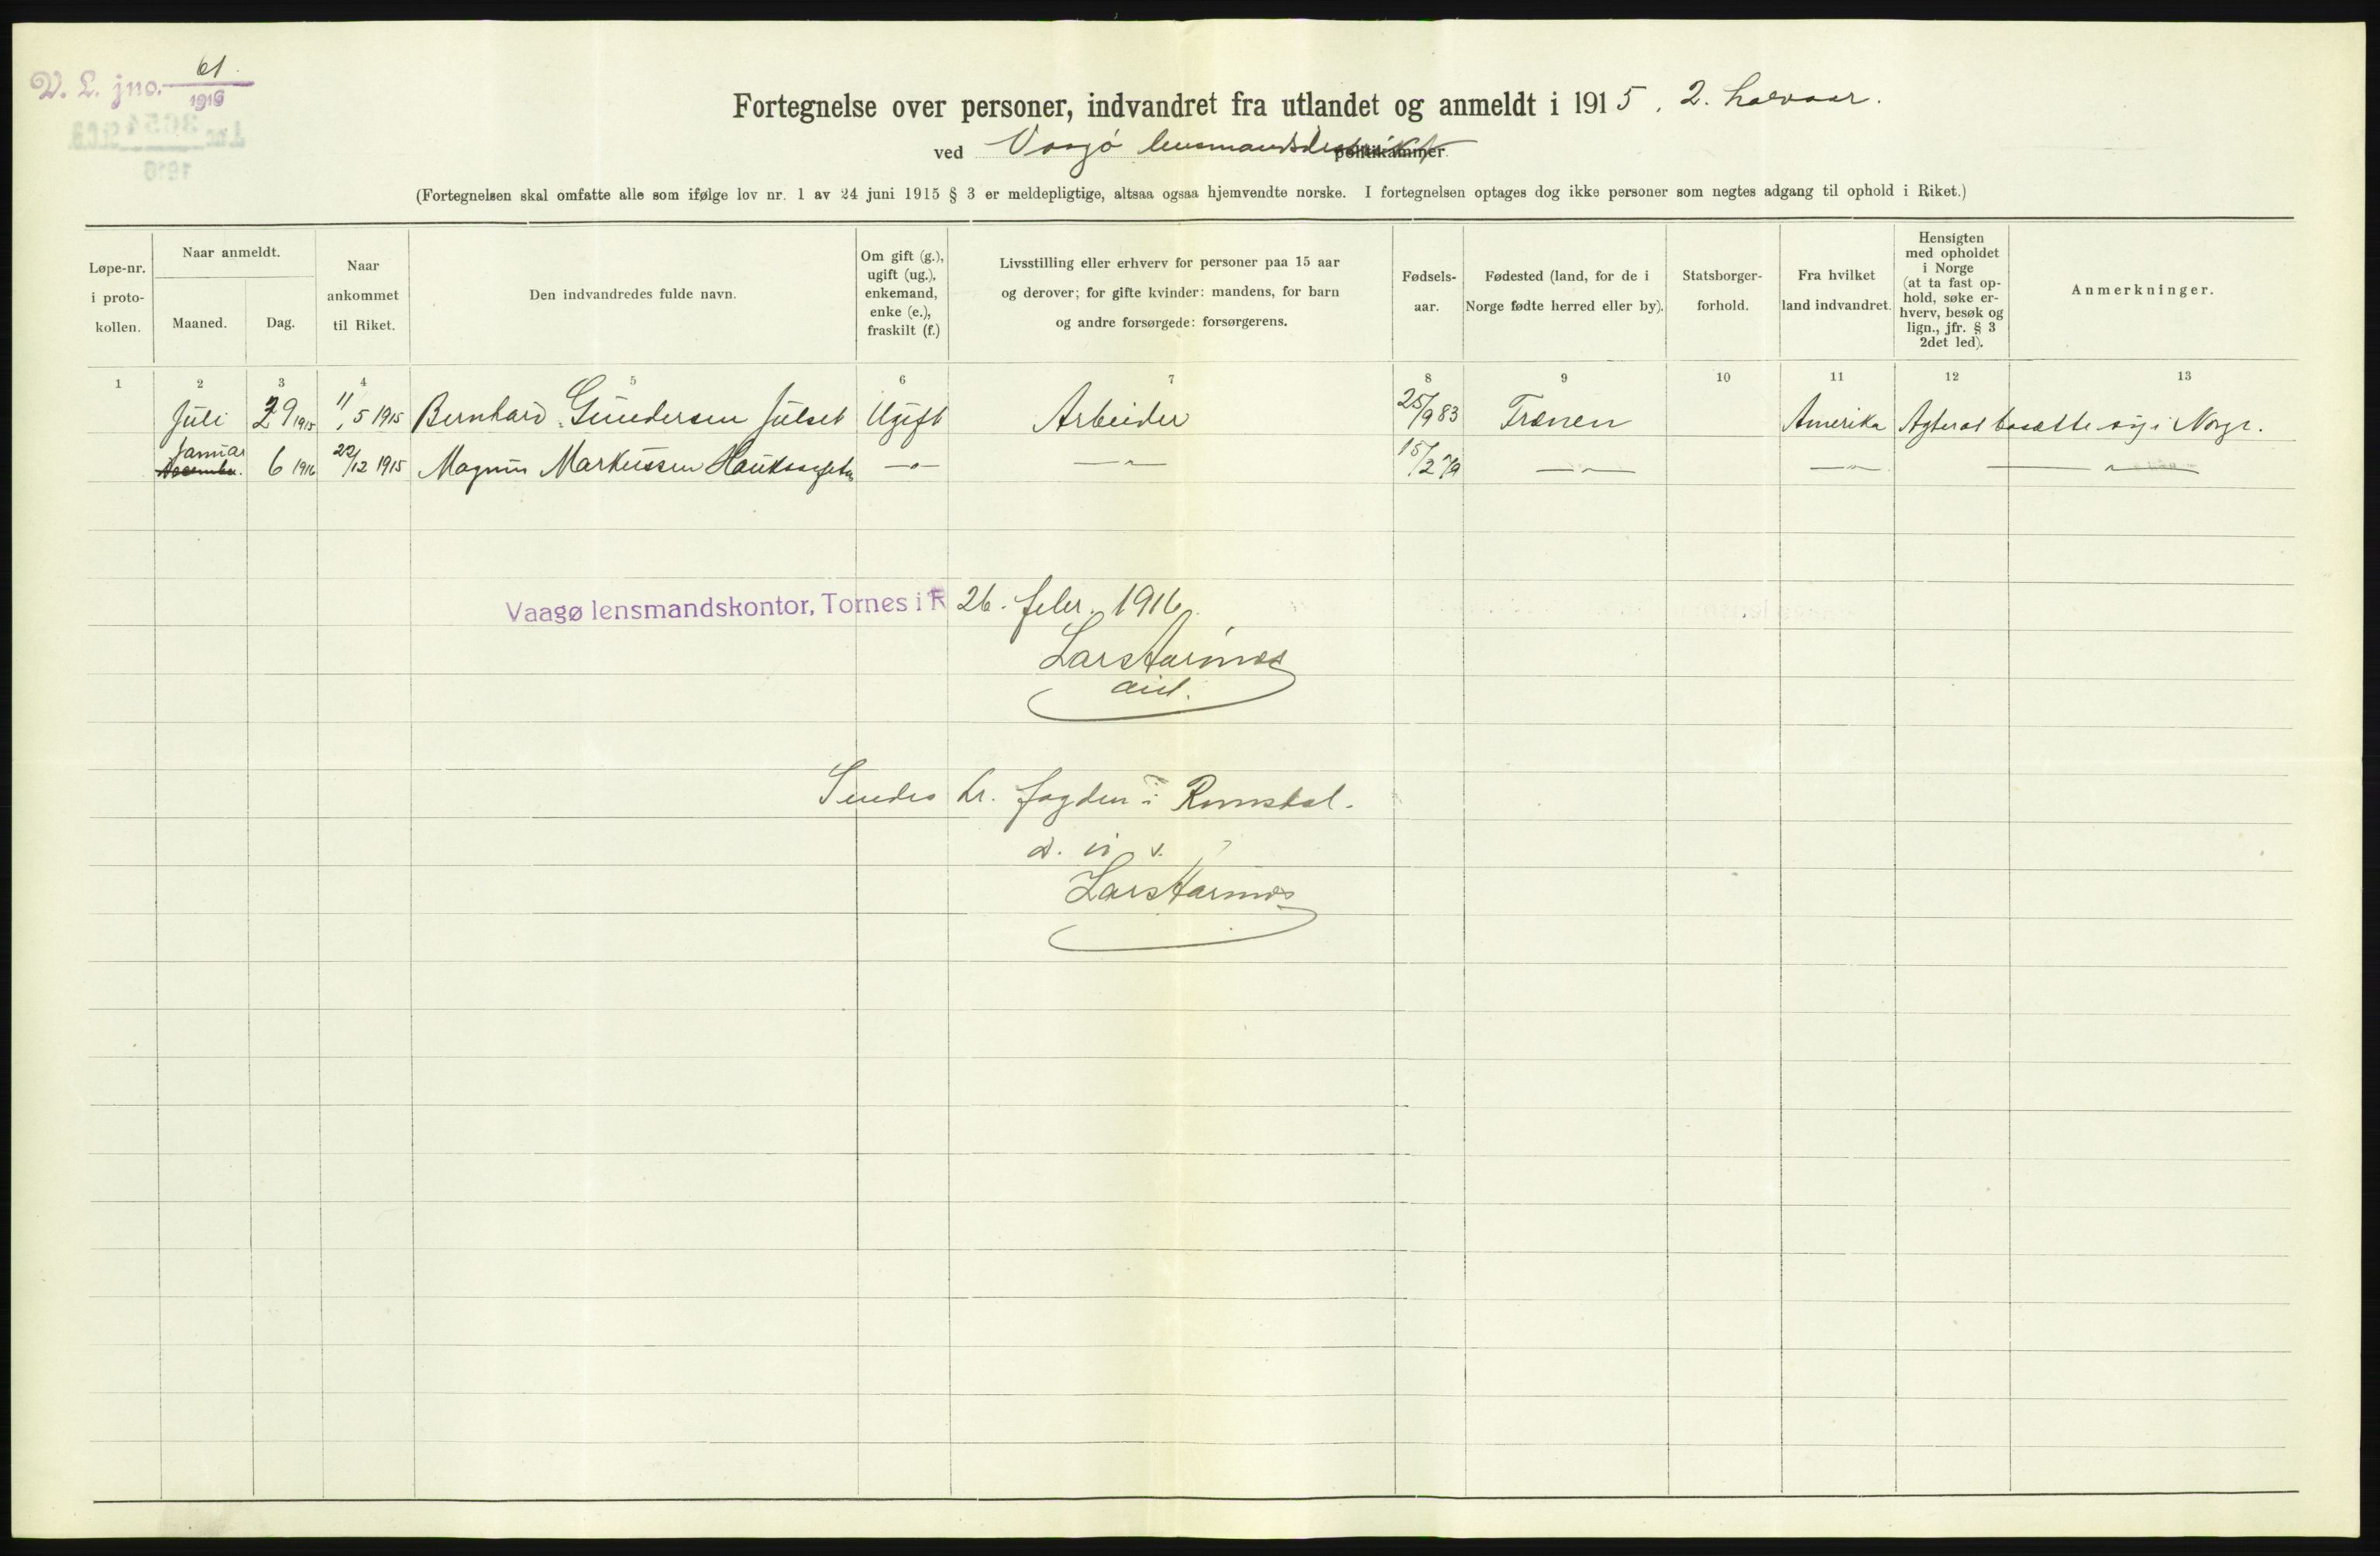 V. L. jno. 61.
1916
Fortegnelse over personer, indvandret fra utlandet og anmeldt i 1915. 2. halvaar.
ved Vaagø lensmandsdistrikt politikammer
(Fortegnelsen skal omfatte alle som ifølge lov nr. 1 av 24 juni 1915 § 3 er meldepligtige, altsaa ogsaa hjemvendte norske. I fortegnelsen optages dog ikke personer som negtes adgang til ophold i Riket.)
Løpe-nr. i proto-kollen.
Naar anmeldt.
Maaned.
Dag.
Naar ankommet til Riket.
Den indvandredes fulde navn.
Om gift (g.), ugift (ug.), enkemand, enke (e.), fraskilt (f.)
Livsstilling eller erhverv for personer paa 15 aar og derover; for gifte kvinder: mandens, for barn og andre forsørgede: forsørgerens.
Fødsels-aar.
Fødested (land, for de i Norge fødte herred eller by).
Statsborger-forhold.
Fra hvilket land indvandret.
Hensigten med opholdet i Norge (at ta fast op-hold, søke er-hverv, besøk og lign., jfr. § 3 2det led).
Anmerkninger.
1 2 3 4 5 6 7 8 9 10 11 12 13
Juli 29 1915 11/5 1915 Bernhard Gundersen Julset Ugift Arbeider 25/9 83 Frænen Amerika Agter at bosætte sig i Norge.
Januar
December. 6 1916 22/12 1915 Magnus Markussen —"— —"— 15/2 79 —"— —"— —"—
Vaagø lensmandskontor, Tornes i R 26. febr. 1916.
Lars
Sendes hr. fogden i Romsdal.
d. u. s.
Lars